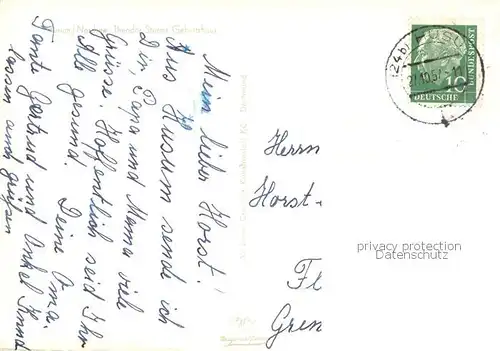 Husum/Nordsee, Theodor Storms Geburtshaus
Mein lieber Horst!
Aus Husum sende ich
Dir, Papa und Mama viele
Grüsse. Hoffentlich seid Ihr
Alle gesund. Deine Oma.
Tante Gertrud und Onkel Knud
lassen auch grüßen
Herrn
Horst-
Fl
Gren
(24b) HUSUM
10
DEUTSCHE
BUNDESPOST
privacy protection
Datenschutz